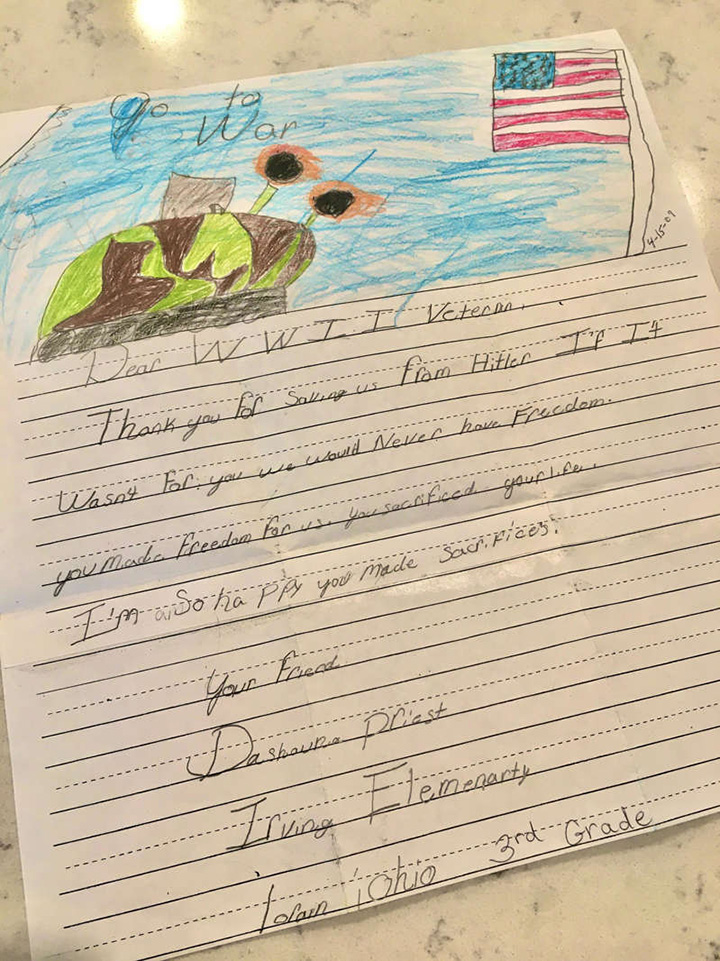 Go to
War
4-15-09
Dear WWII Veteran,
Thank you for saving us from Hitler If It
Wasnt For you we would Never have Freedom.
you made freedom for us. you sacrificed your life.
I'm so happy you made sacrifices!
Your friend
Dashauna Priest
Irving Elemenarty
lorain Ohio 3rd Grade